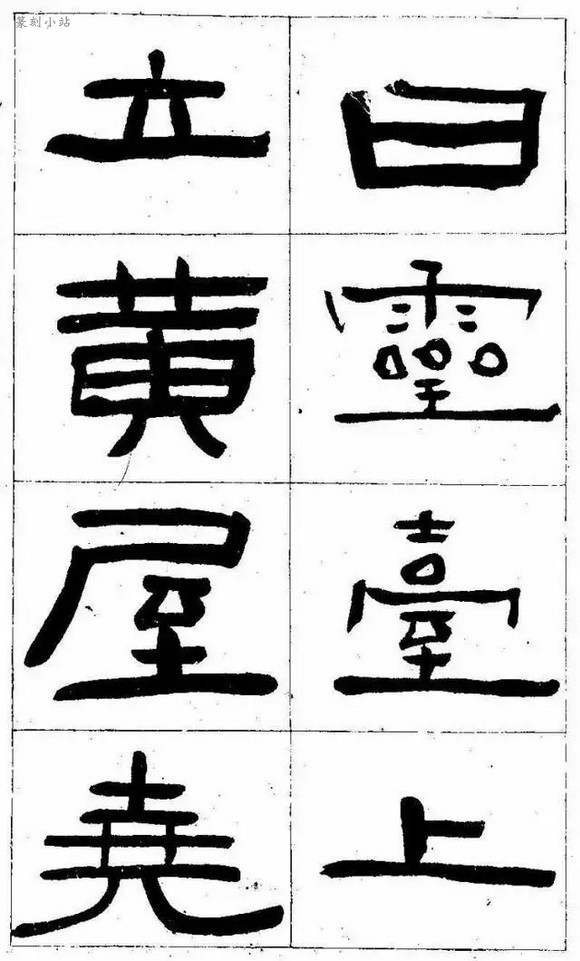 篆刻小站
曰靈臺上
立黃屋堯